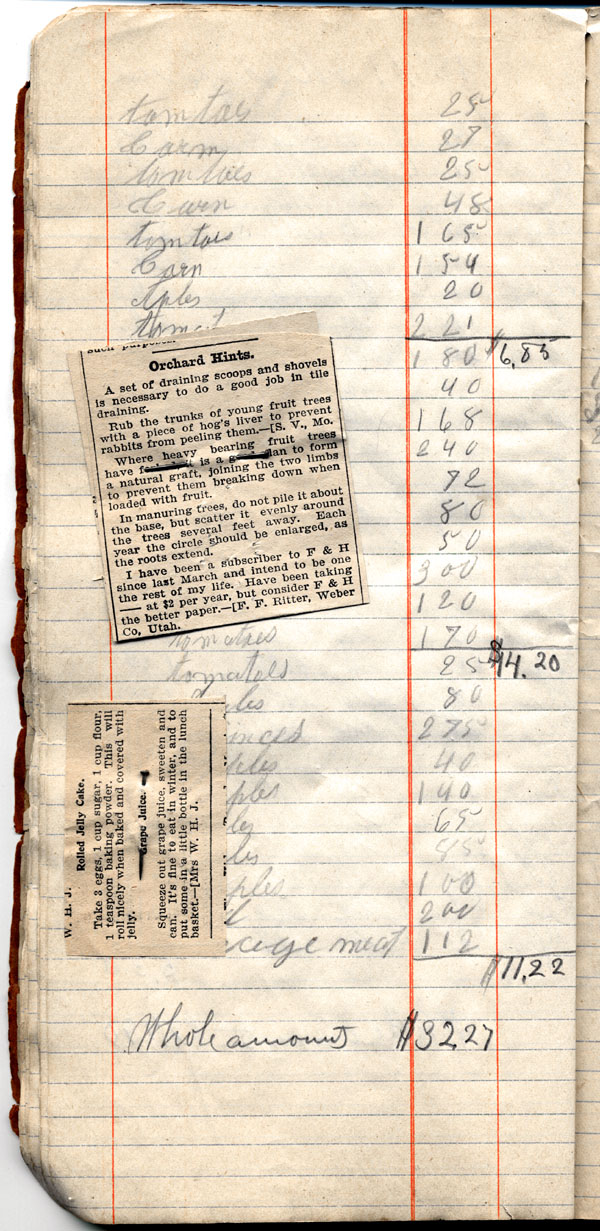 tomtoes 25
Corn 27
tomtoes 25
Corn 48
tomtoes 1 65
Corn 1 54
Aples 20
tomat 2 21
1 80 $6,85
40
1 68
2 40
72
80
50
3 00
1 20
such purposes.
Orchard Hints.
A set of draining scoops and shovels
is necessary to do a good job in tile
draining.
Rub the trunks of young fruit trees
with a piece of hog's liver to prevent
rabbits from peeling them.—[S. V., Mo.
Where heavy bearing fruit trees
have is a to form
a natural graft, joining the two limbs
to prevent them breaking down when
loaded with fruit.
In manuring trees, do not pile it about
the base, but scatter it evenly around
the trees several feet away. Each
year the circle should be enlarged, as
the roots extend.
I have been a subscriber to F & H
since last March and intend to be one
the rest of my life. Have been taking
— at $2 per year, but consider F & H
the better paper.—[F. F. Ritter, Weber
Co, Utah.
tomatoes 1 70
tomatoes 25 $14.20
les 80
2 75
ples 40
ples 1 40
les 65
les 85
ples 1 00
2 00
meat 1 12
$11,22
W. H. J.
Rolled Jelly Cake.
Take 3 eggs, 1 cup sugar, 1 cup flour,
1 teaspoon baking powder. This will
roll nicely when baked and covered with
jelly.
Grape Juice.
Squeeze out grape juice, sweeten and
can. It's fine to eat in winter, and to
put some in a little bottle in the lunch
basket.—[Mrs W. H. J.
Whole amount $32,27